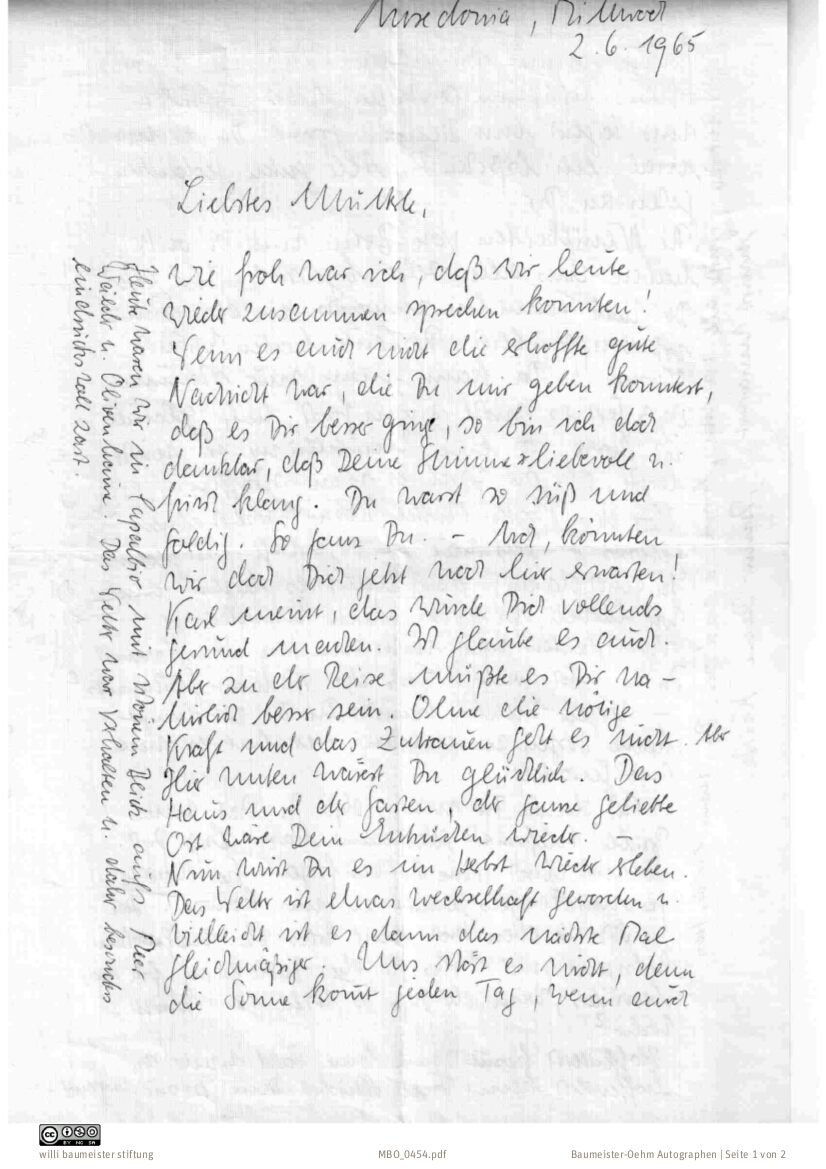 Macedonia, Mittwoch
2.6.1965
Liebstes Mutkle,
Wie froh war ich, daß wir heute
wieder zusammen sprechen konnten!
Wenn es auch nicht die erhoffte gute
Nachricht war, die Du mir geben konntest,
daß es Dir besser ginge, so bin ich doch
dankbar, daß Deine Stimme liebevoll u.
frisch klang. Du warst so süß und
goldig. So ganz Du. – Ach, könnten
wir doch Dich jetzt noch hier erwarten!
Karl meint, das würde Dich vollends
gesund machen. Ich glaube es auch.
Aber zu der Reise müßte es Dir na-
türlich besser sein. Ohne die nötige
Kraft und das Zutrauen geht es nicht. Aber
Hier unten wärest Du glücklich. Das
Haus und der Garten, der ganze geliebte
Ort wäre Dein Entzücken wieder. –
Nun wirst Du es im Herbst wieder erleben.
Das Wetter ist etwas wechselhaft geworden u.
vielleicht ist es dann das nächste Mal
gleichmäßiger. Uns stört es nicht, denn
die Sonne komt jeden Tag, wenn auch
Heute waren wir in Capalbio, mit schönem Blick aufs Meer
Wälder u. Olivenhaine. Das Wetter war verhalten u. daher besonders
eindrucksvoll zart.
willi baumeister stiftung
MBO_0454.pdf
Baumeister-Oehm Autographen | Seite 1 von 2